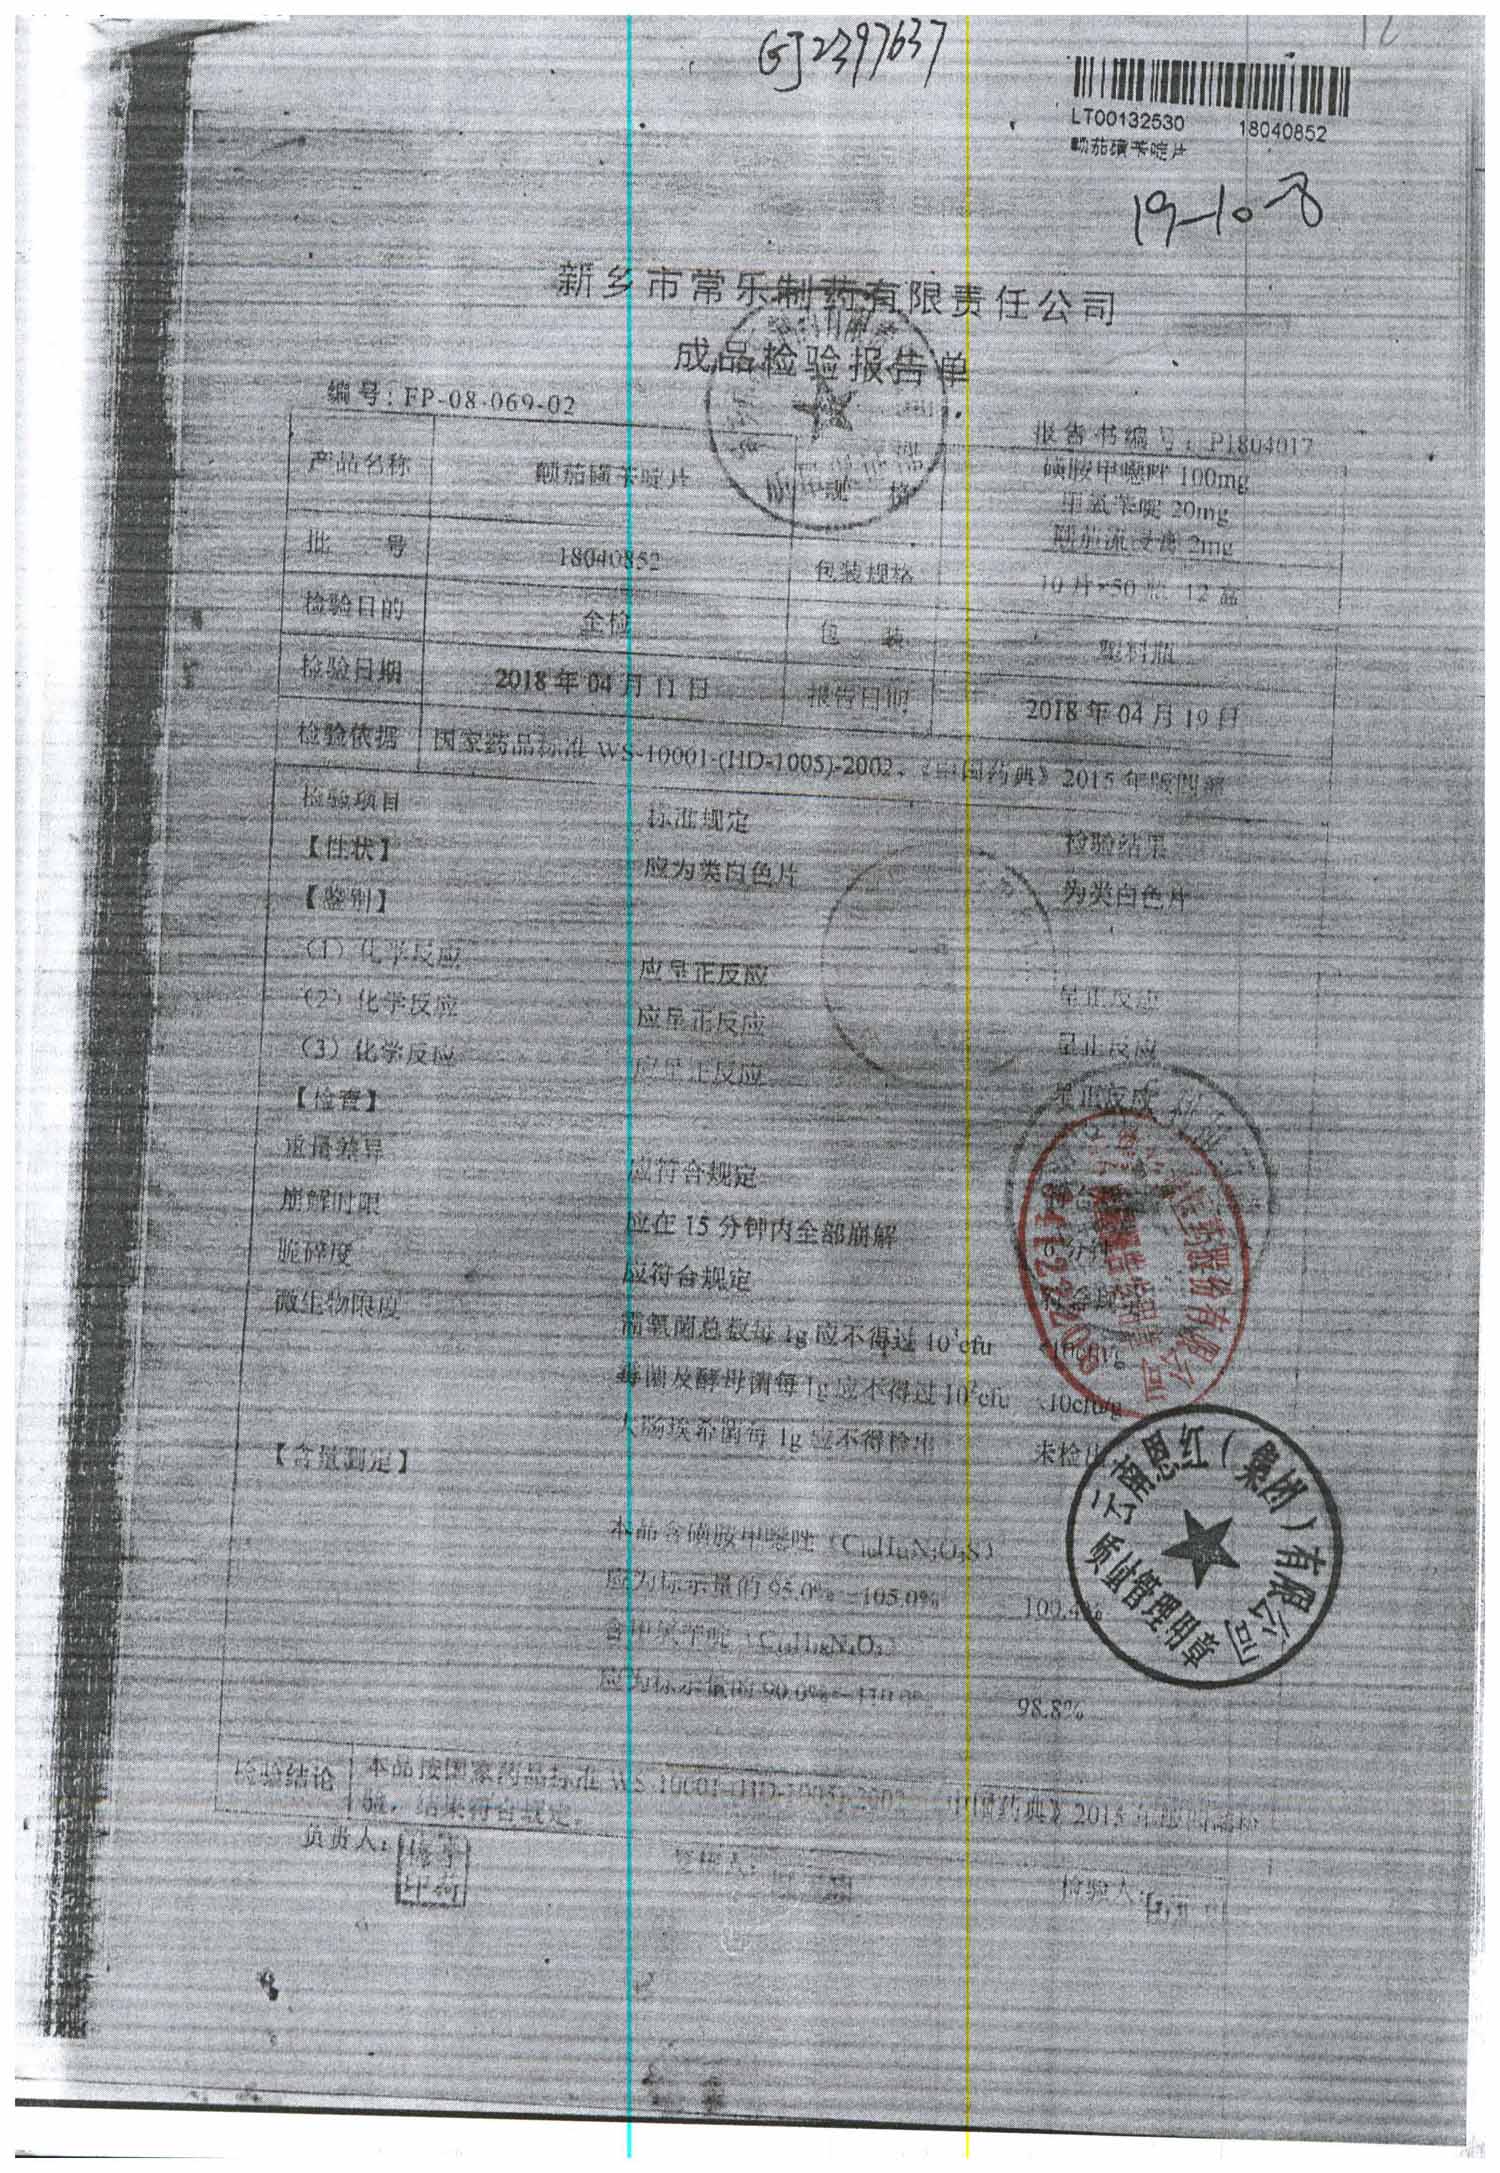 GJ2397637
LT00132530 18040852
颠茄磺苄啶片
19-10-8
新乡市常乐制药有限责任公司
成品检验报告单
编号:FP-08-069-02
报告书编号:P1804017
产品名称 颠茄磺苄啶片 规 格 磺胺甲噁唑 100mg
甲氧苄啶 20mg
颠茄流浸膏 2mg
批 号 18040852 包装规格 10片×50瓶 12盒
检验目的 全检 包 装 塑料瓶
检验日期 2018年04月11日 报告日期 2018年04月19日
检验依据 国家药品标准 WS-10001-(HD-1005)-2002、《中国药典》2015年版四部
检验项目 标准规定 检验结果
【性状】 应为类白色片 为类白色片
【鉴别】
(1)化学反应 应呈正反应 呈正反应
(2)化学反应 应呈正反应 呈正反应
(3)化学反应 应呈正反应 呈正反应
【检查】
重量差异 应符合规定 符合
崩解时限 应在15分钟内全部崩解 6分钟
脆碎度 应符合规定 符合规定
微生物限度 需氧菌总数每1g应不得过10³cfu <10cfu/g
霉菌及酵母菌每1g应不得过10²cfu <10cfu/g
大肠埃希菌每1g应不得检出 未检出
【含量测定】
本品含磺胺甲噁唑(C₁₀H₁₁N₃O₃S)
应为标示量的95.0%~105.0% 100.4%
含甲氧苄啶(C₁₄H₁₈N₄O₃)
应为标示量的90.0%~110.0% 98.8%
检验结论 本品按国家药品标准 WS-10001-(HD-1005)-2002、《中国药典》2015年版四部检
验,结果符合规定。
负责人: 复核人: 检验人:
云南恩红(集团)有限公司
质量管理用章